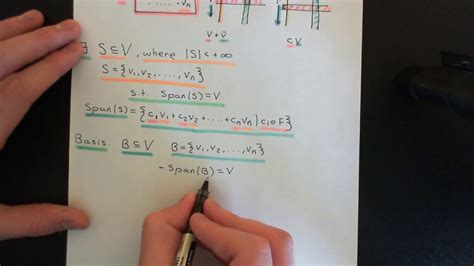 ..., vₙ}
v+v
cv
∃ S⊆V, where |S|<+∞
S={v₁,v₂,.....,vₙ}
s.t. Span(S)=V
Span(S)={c₁v₁+c₂v₂+....+cₙvₙ|cᵢ∈F}
Basis: B⊆V B={v₁,v₂,...,vₙ}
- Span(B)=V